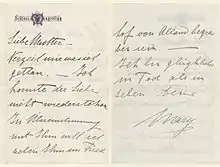 Liebe Mutter –
Verzeih mir was ich
getan. – Ich
konnte der Liebe
nicht widerstehen
In Übereinstimmung
mit Ihm will ich
neben Ihm im Fried
hof von Alland begra
ben sein –
Ich bin glücklicher
im Tod als im
Leben Deine
Mary